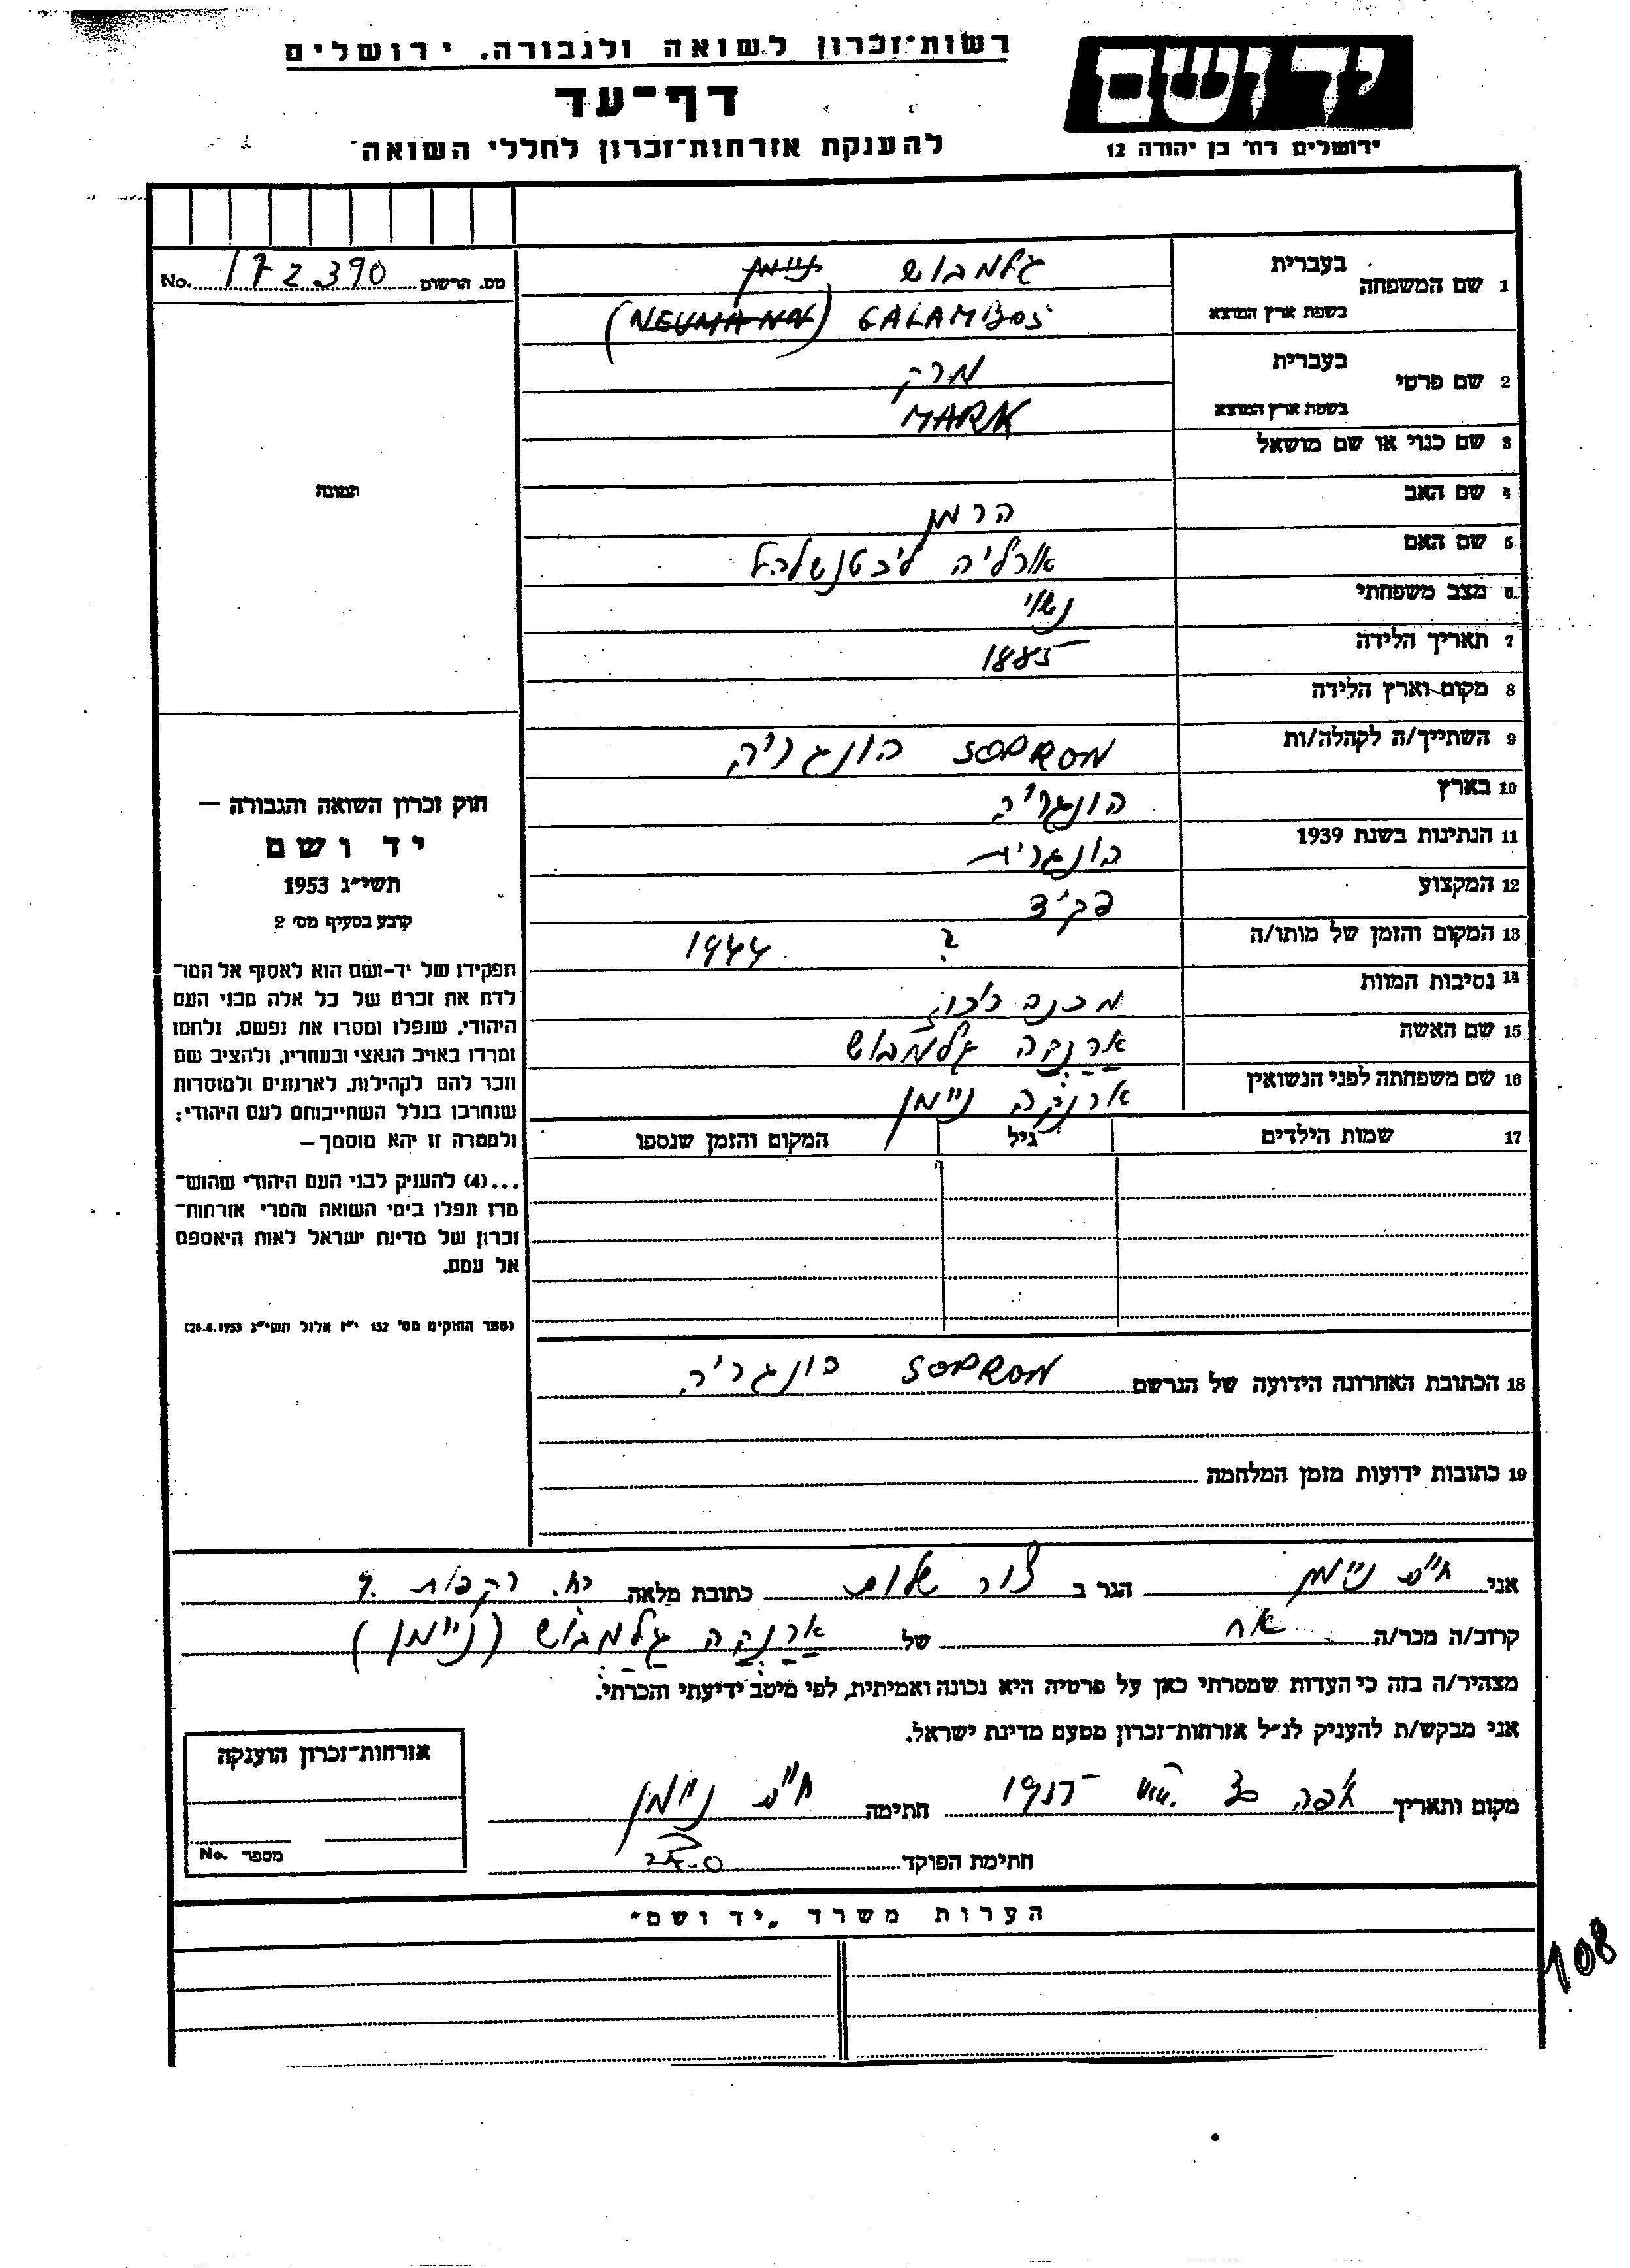 רשות־זכרון לשואה ולגבורה, ירושלים
דף־עד
להענקת אזרחות־זכרון לחללי השואה
ידושם
ירושלים רח׳ בן יהודה 12
מס. הרשום 172390 No.
1 שם המשפחה
בעברית גלמבוש ניימן
בשפת ארץ המוצא GALAMBOS (NEUMANN)
2 שם פרטי
בעברית מרק
בשפת ארץ המוצא MARK
3 שם כנוי או שם מושאל
4 שם האב הרמן
5 שם האם
6 מצב משפחתי נשוי
7 תאריך הלידה 1885
8 מקום וארץ הלידה
9 השתייך/ה לקהלה/ות SOPRON הונגריה
10 בארץ הונגריה
11 הנתינות בשנת 1939 הונגרית
12 המקצוע פקיד
13 המקום והזמן של מותו/ה ? 1944
14 נסיבות המוות מחנה ריכוז
15 שם האשה ארנקה גלמבוש
16 שם משפחתה לפני הנשואין ארנקה ניימן
17 שמות הילדים גיל המקום והזמן שנספו
18 הכתובת האחרונה הידועה של הנרשם SOPRON הונגריה
19 כתובות ידועות מזמן המלחמה
תמונה
חוק זכרון השואה והגבורה –
יד ושם
תשי״ג 1953
קובע בסעיף מס׳ 2
תפקידו של יד-ושם הוא לאסוף אל המו־
לדת את זכרם של כל אלה מבני העם
היהודי, שנפלו ומסרו את נפשם, נלחמו
ומרדו באויב הנאצי ובעוזריו, ולהציב שם
וזכר להם לקהילות, לארגונים ולמוסדות
שנחרבו בגלל השתייכותם לעם היהודי;
ולמטרה זו יהא מוסמך –
...(4) להעניק לבני העם היהודי שהוש־
מדו ונפלו בימי השואה והמרי אזרחות־
זכרון של מדינת ישראל לאות היאספם
אל עמם.
(ספר החוקים מס׳ 132 י״ז אלול תשי״ג 28.8.1953)
אני חיים ניימן הגר ב צור שלום כתובת מלאה רח. רקפות 9
קרוב/ה מכר/ה אח של ארנקה גלמבוש (ניימן)
מצהיר/ה בזה כי העדות שמסרתי כאן על פרטיה היא נכונה ואמיתית, לפי מיטב ידיעתי והכרתי.
אני מבקש/ת להעניק לנ״ל אזרחות־זכרון מטעם מדינת ישראל.
מקום ותאריך חיפה חתימה חיים ניימן
חתימת הפוקד
אזרחות־זכרון הוענקה
מספר No.
הערות משרד „יד ושם״
108